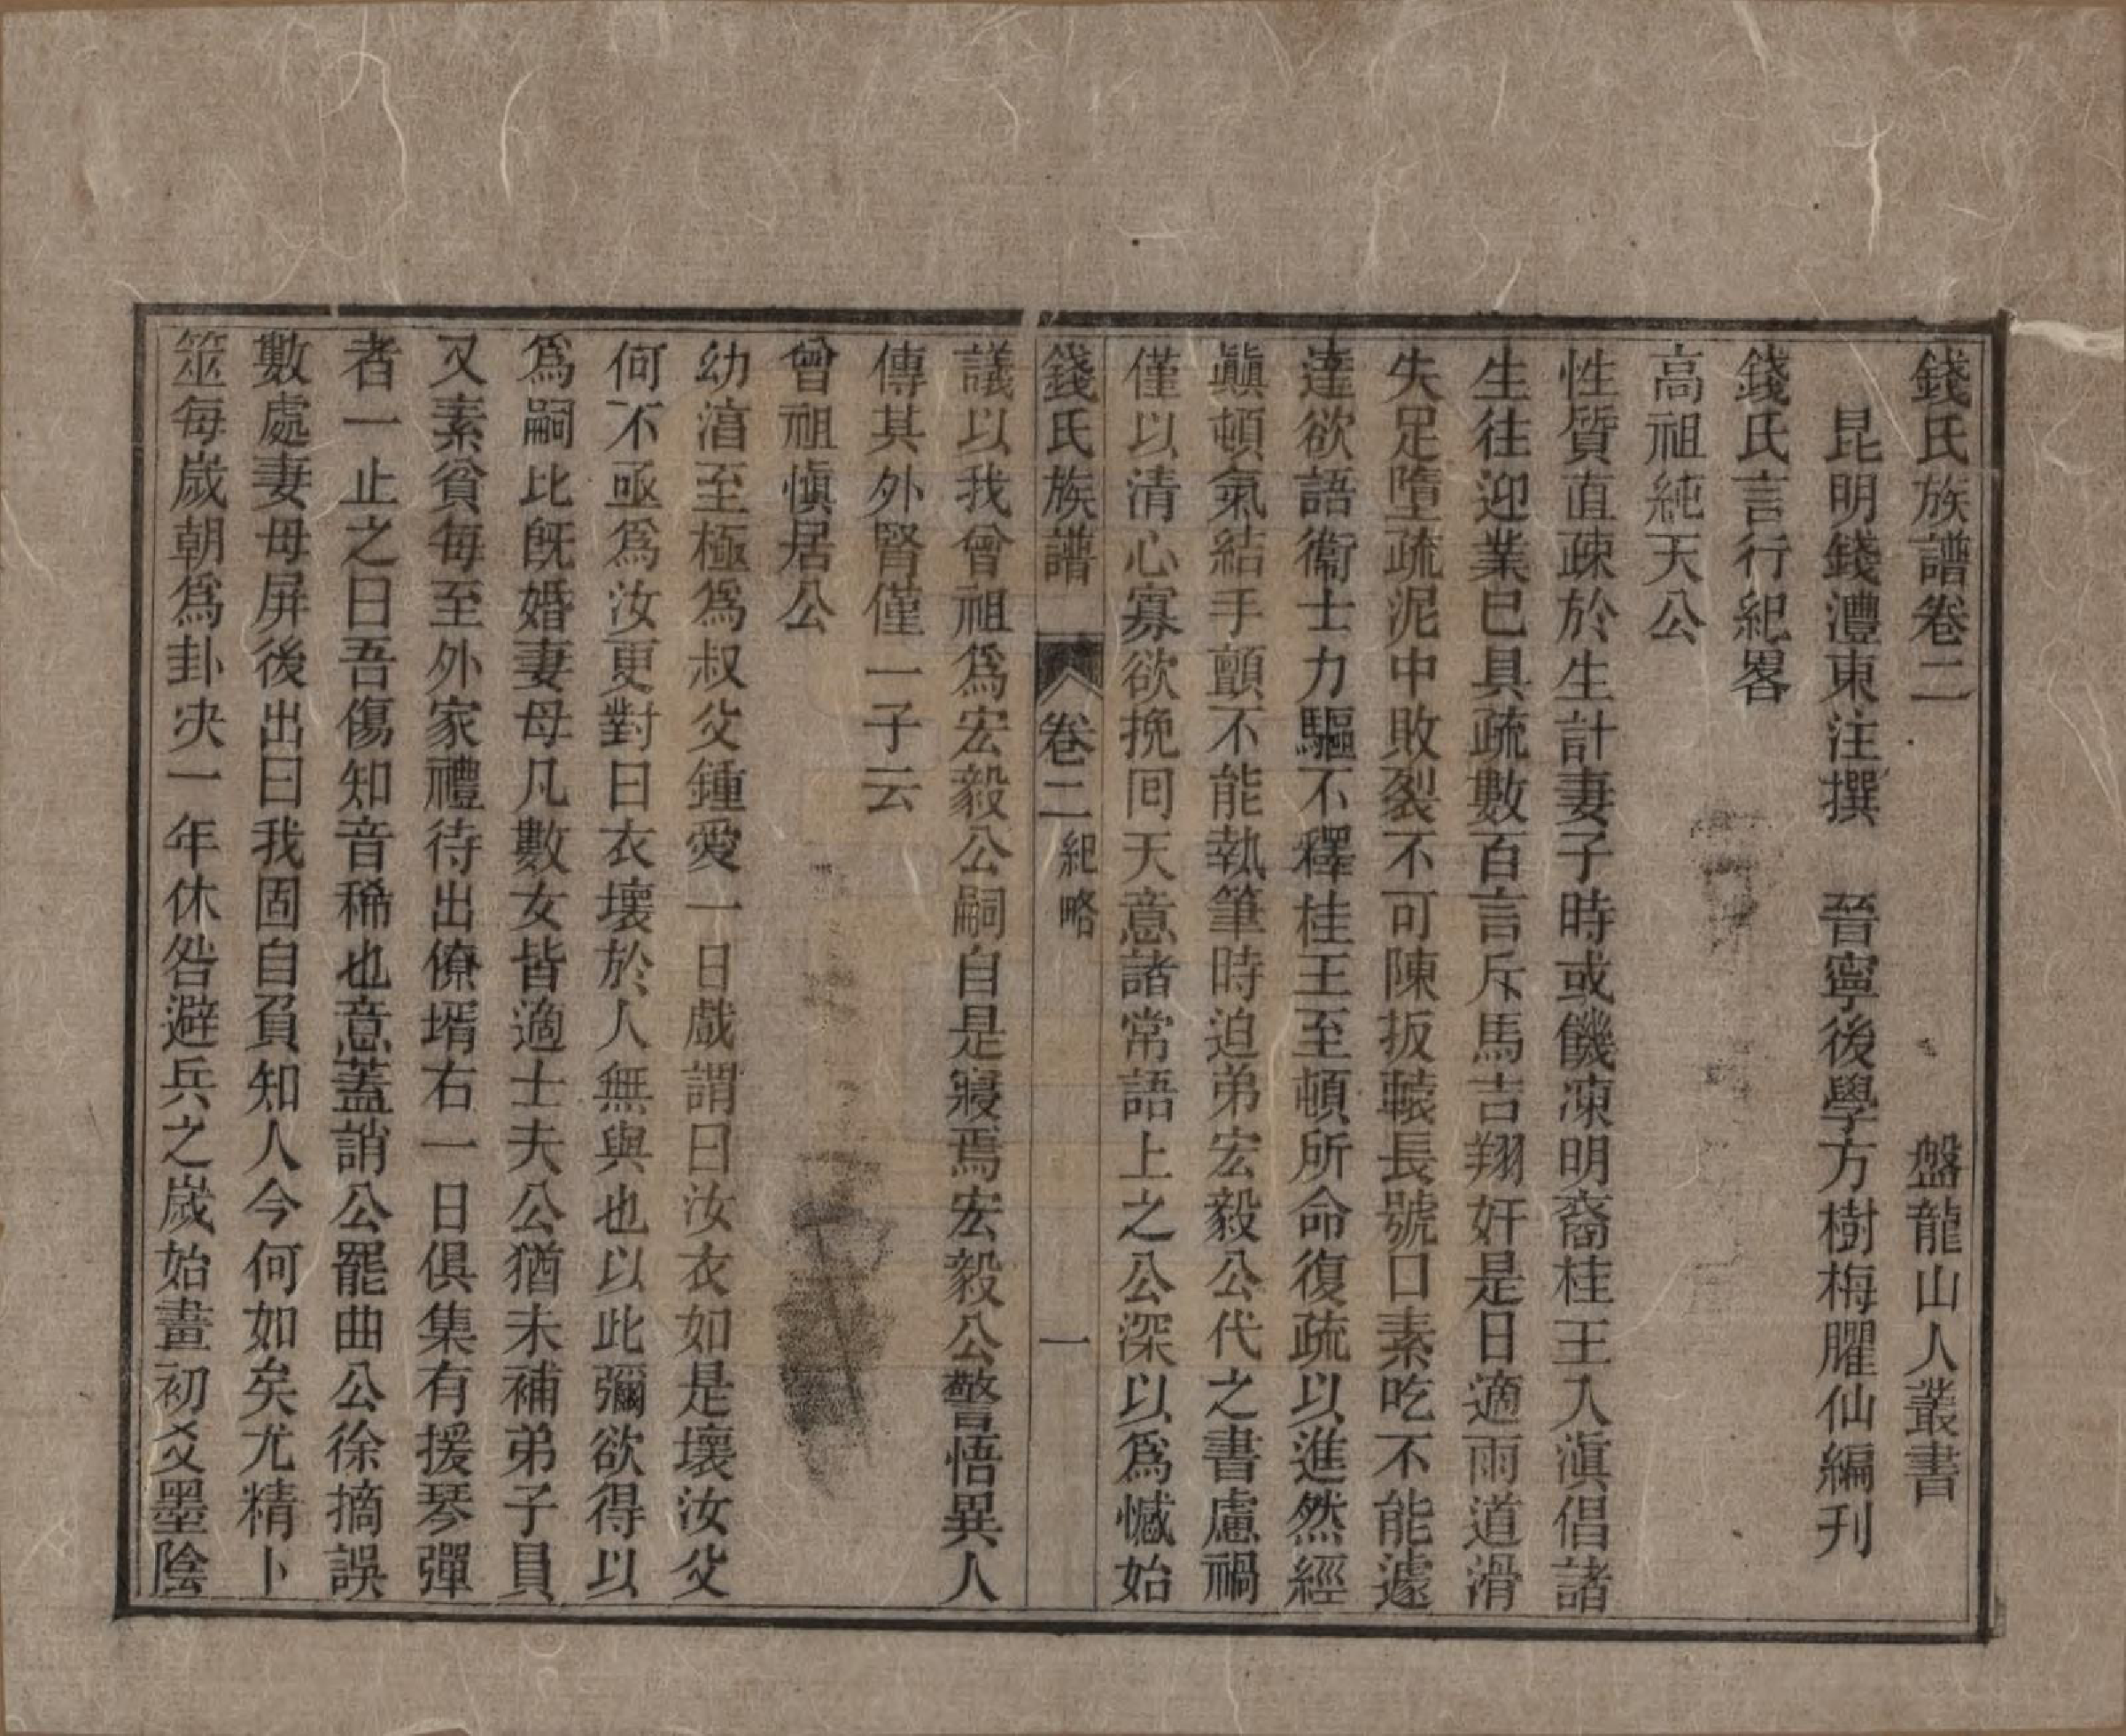 錢氏族譜卷二　盤龍山人叢書
昆明錢灃東注撰　晉寧後學方樹梅臞仙編刊
錢氏言行紀畧
高祖純天公
性質直疎於生計妻子時或饑凍明裔桂王入滇倡諸
生往迎業已具疏數百言斥馬吉翔奸是日適雨道滑
失足墮疏泥中敗裂不可陳扳轅長號口素吃不能遽
達欲語衞士力驅不釋桂王至頓所命復疏以進然經
顚頓氣結手顫不能執筆時迫弟宏毅公代之書慮禍
僅以清心寡欲挽囘天意諸常語上之公深以爲憾始
錢氏族譜　卷二　紀略　一
議以我曾祖爲宏毅公嗣自是寢焉宏毅公警悟異人
傳其外腎僅一子云
曾祖愼居公
幼湻至極爲叔父鍾愛一日戲謂曰汝衣如是壞汝父
何不亟爲汝更對曰衣壞於人無與也以此彌欲得以
爲嗣比旣婚妻母凡數女皆適士夫公猶未補弟子員
又素貧每至外家禮待出僚壻右一日俱集有援琴彈
者一止之曰吾傷知音稀也意蓋誚公罷曲公徐摘誤
數處妻母屏後出曰我固自負知人今何如矣尤精卜
筮每歲朝爲卦决一年休咎避兵之歲始畫初爻墨陰